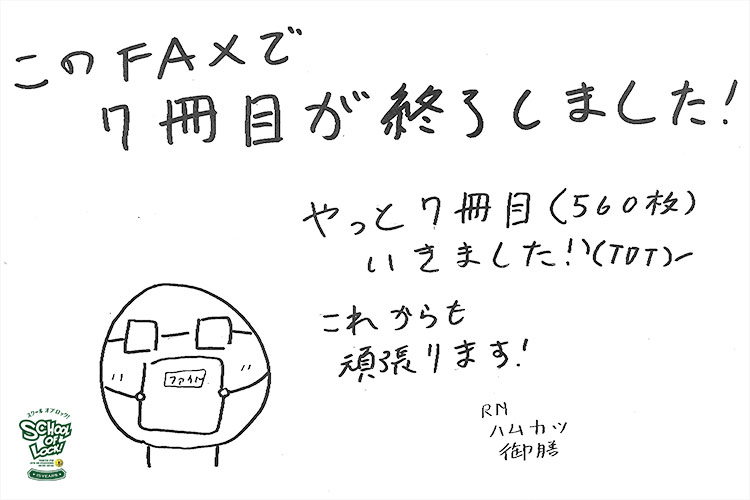 このFAXで
7冊目が終了しました!
やっと7冊目(560枚)
いきました!!(TOT)
これからも
頑張ります!
ファイト
RN
ハムカツ
御膳
スクールオブロック!
SCHOOL
OF
LOCK!
15 YEARS